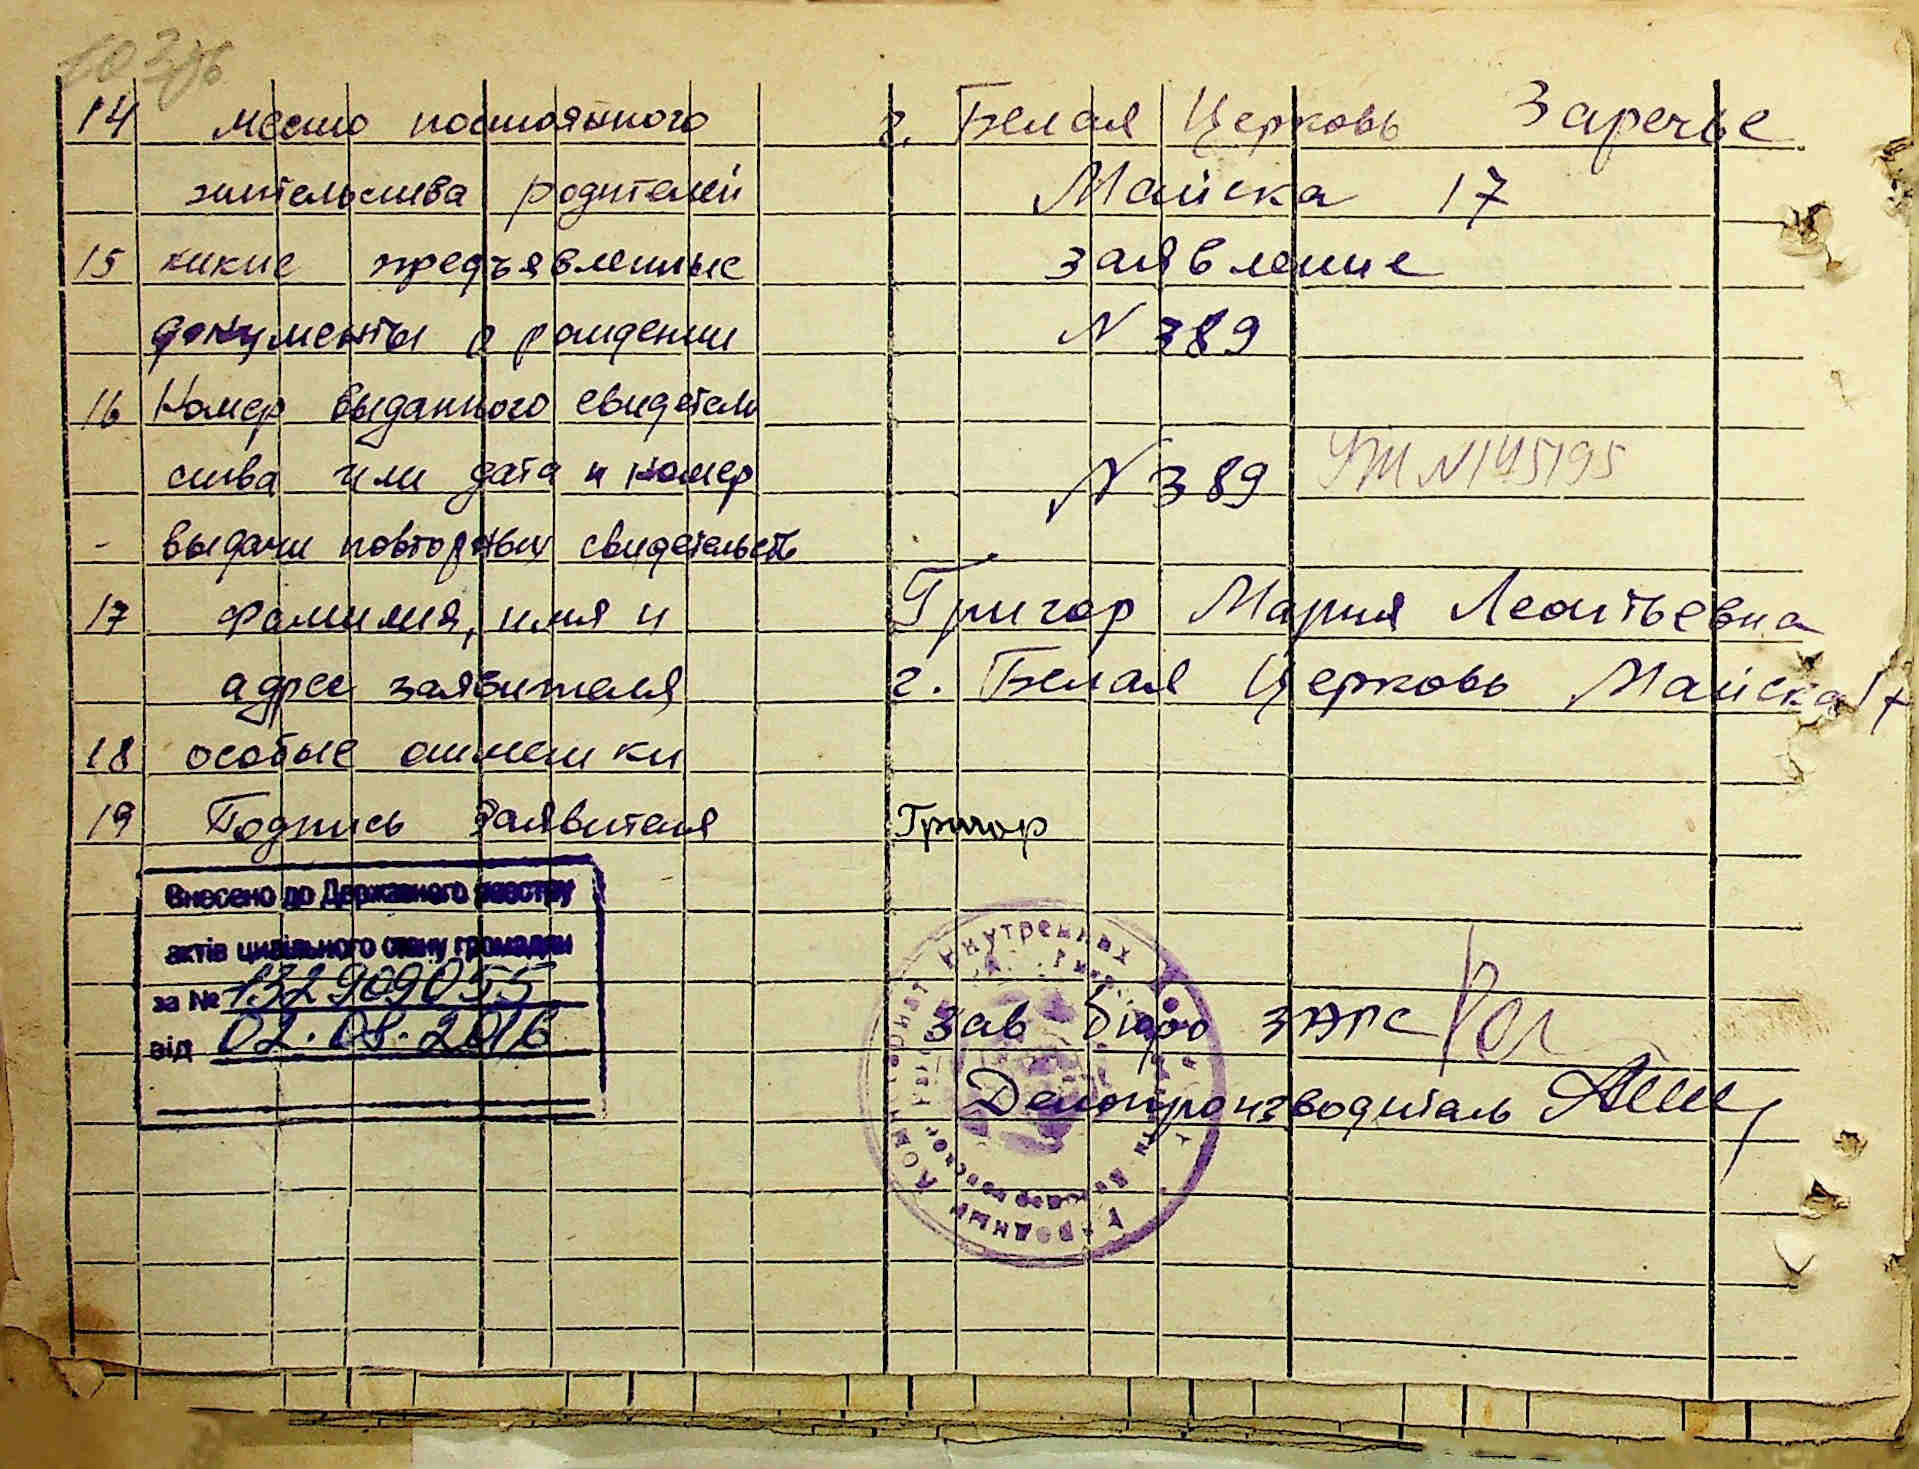 14 место постоянного г. Белая Церковь Заречье
жительства родителей Майска 17
15 какие предъявленные заявление
документы о рождении N 389
16 Номер выданного свидетель
ства или дата и номер N 389 УТ N 145195
- выдачи повторных свидетельств
17 фамилия, имя и Григор Мария Леонтьевна
адрес заявителя г. Белая Церковь Майска 17
18 особые отметки
19 Подпись Заявителя Григор
Внесено до Державного реєстру
актів цивільного стану громадян
за № 132909055
від 02.08.2016
Зав бюро ЗАГС
Делопроизводитель
Народный Комиссариат Внутренних Дел